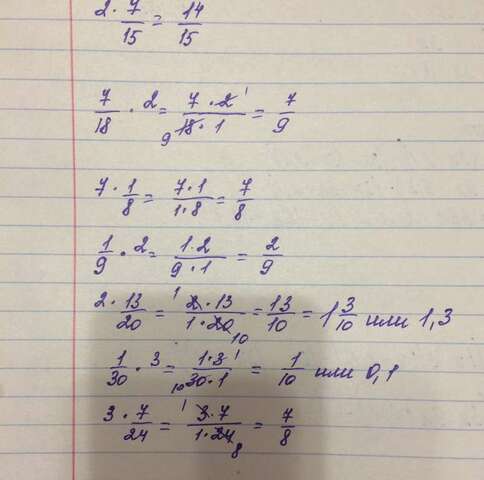 2 · 7/15 = 14/15
7/18 · 2 = 7 · 2 1 / 9 18 · 1 = 7/9
7 · 1/8 = 7 · 1 / 1 · 8 = 7/8
1/9 · 2 = 1 · 2 / 9 · 1 = 2/9
2 · 13/20 = 1 2 · 13 / 1 · 20 10 = 13/10 = 1 3/10 или 1,3
1/30 · 3 = 1 · 3 1 / 10 30 · 1 = 1/10 или 0,1
3 · 7/24 = 1 3 · 7 / 1 · 24 8 = 7/8